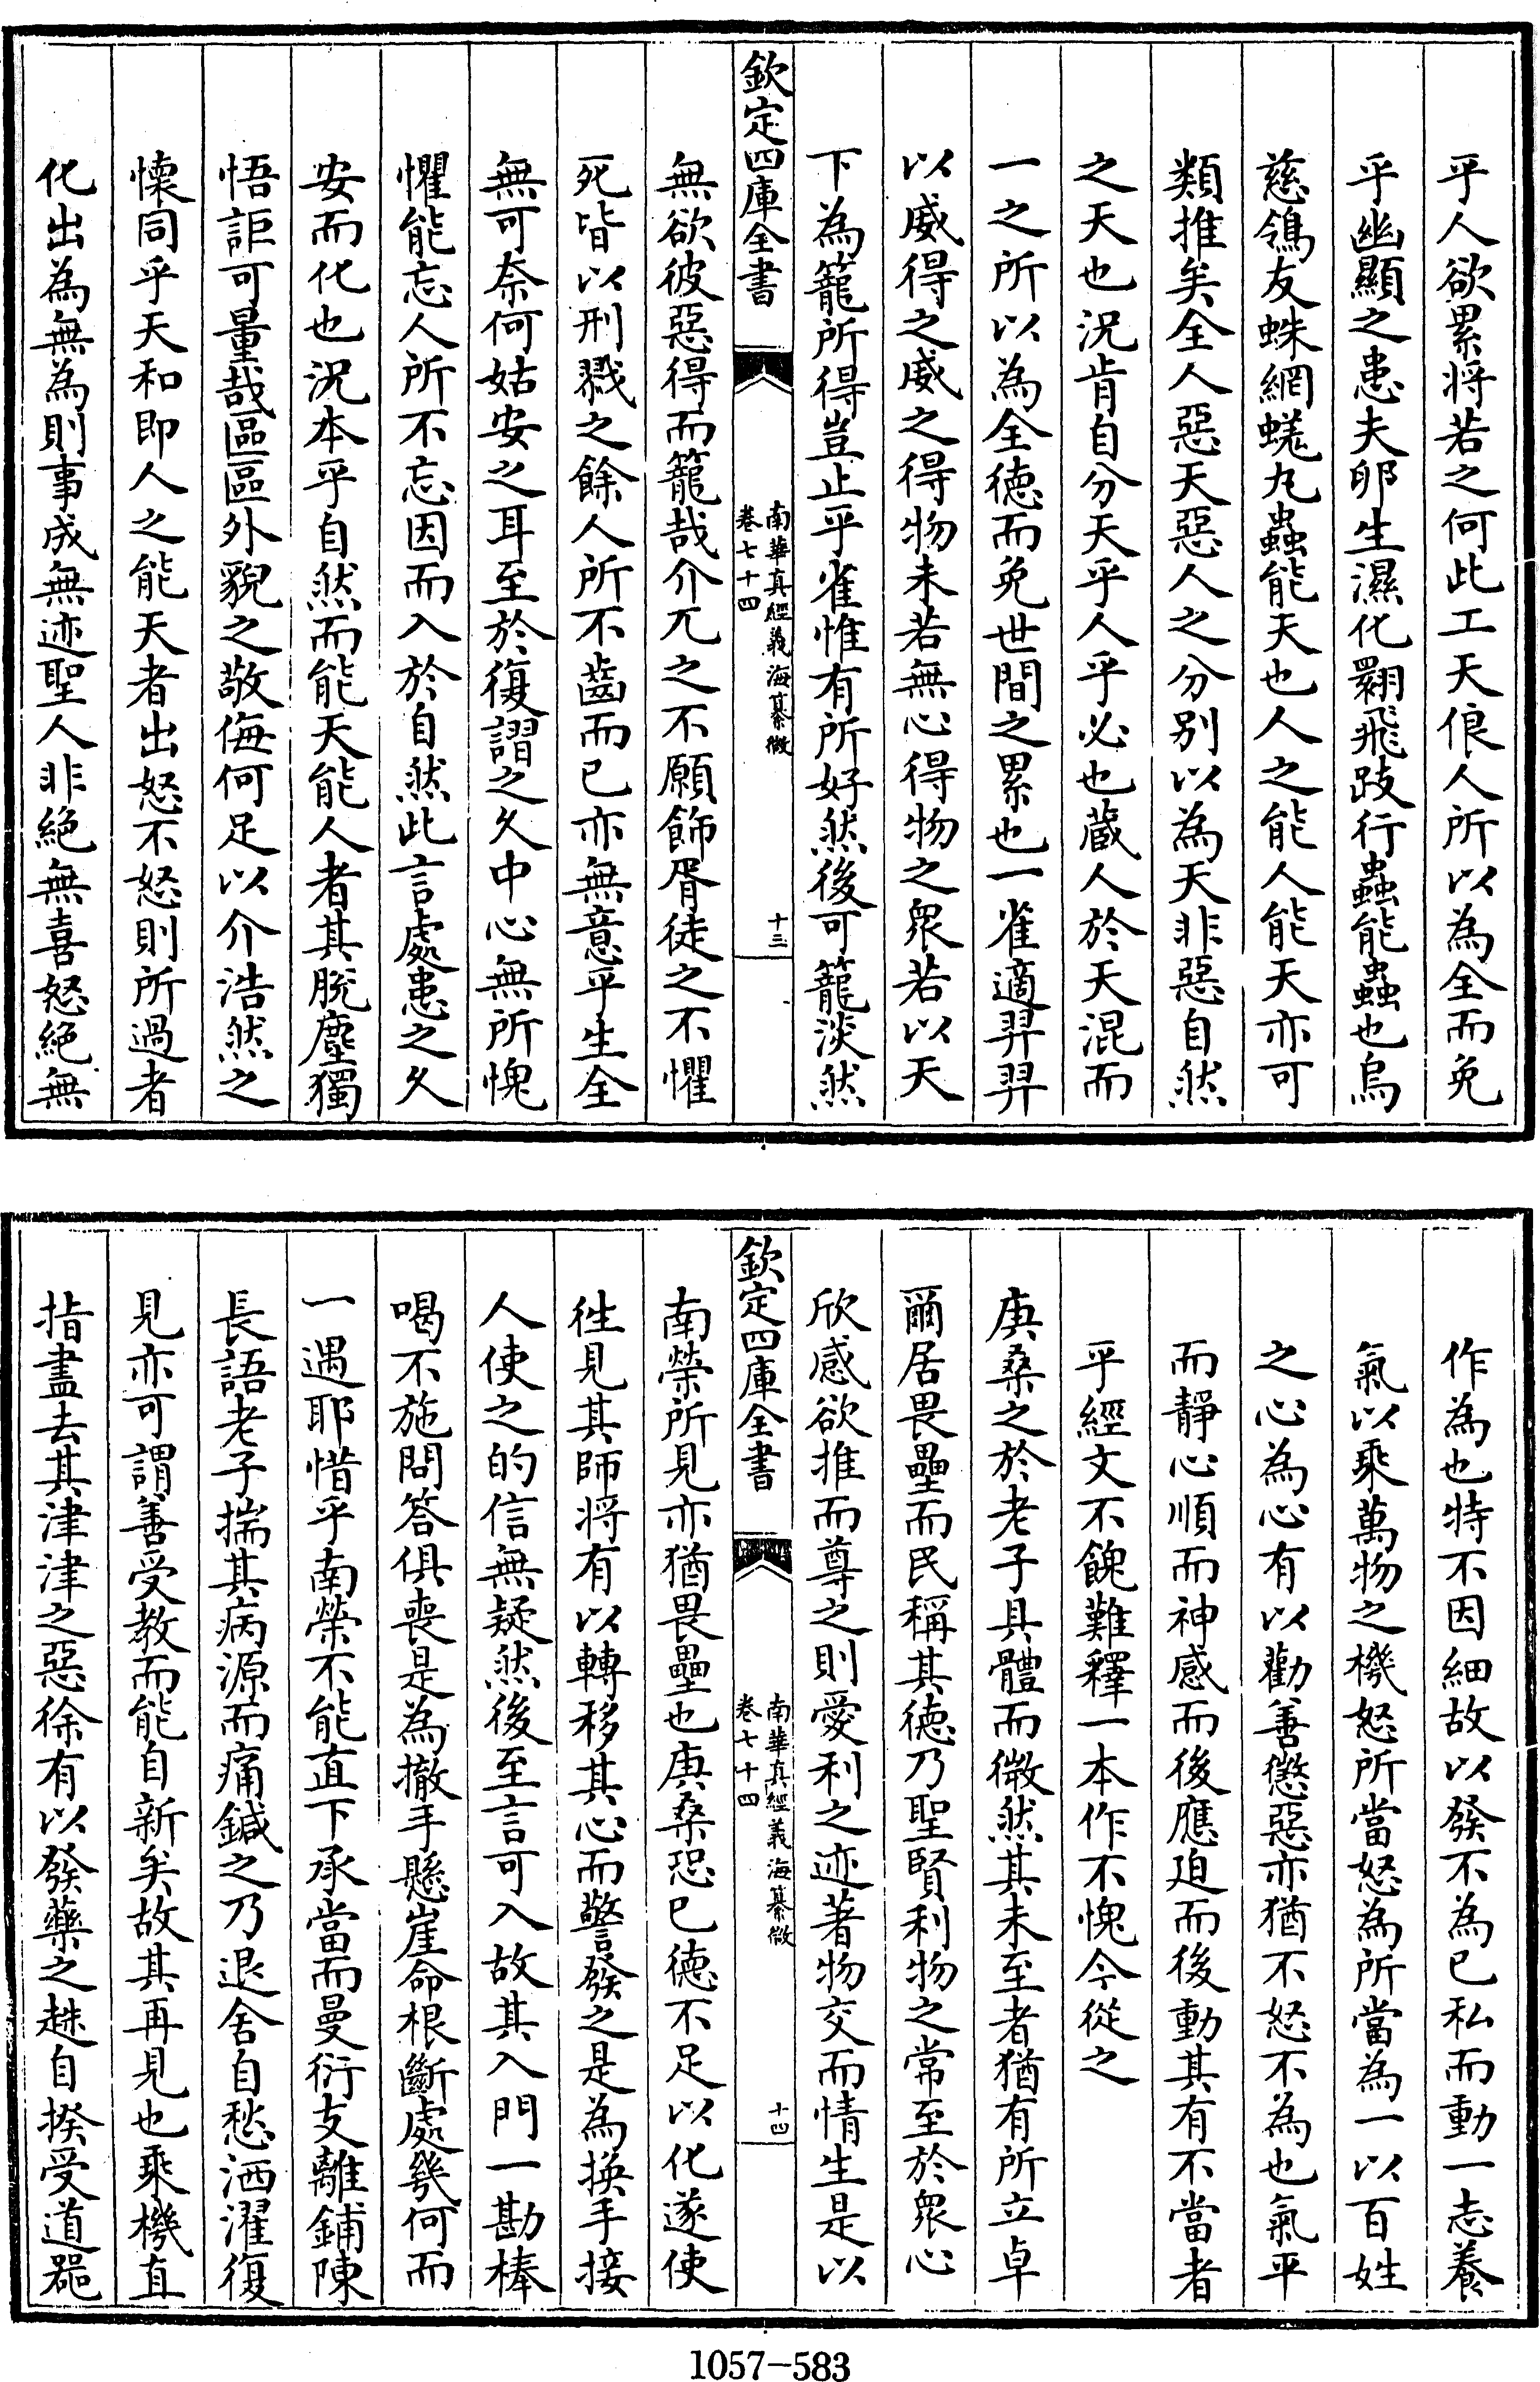 乎人欲累將若之何此工天俍人所以為全而免
乎幽顯之患夫卵生濕化翾飛跂行蟲能蟲也烏
慈鴒友蛛網蜣丸蟲能天也人之能人能天亦可
類推矣全人惡天惡人之分别以為天非惡自然
之天也況肯自分天乎人乎必也蔵人於天混而
一之所以為全徳而免世間之累也一雀適羿羿
以威得之威之得物未若無心得物之衆若以天
下為籠所得豈止乎雀惟有所好然後可籠淡然
欽定四庫全書
南華真經義海纂微
卷七十四
十三
無欲彼惡得而籠哉介兀之不願飾胥徒之不懼
死皆以刑戮之餘人所不齒而已亦無意乎生全
無可奈何姑安之耳至於復謵之久中心無所愧
懼能忘人所不忘因而入於自然此言處患之久
安而化也況本乎自然而能天能人者其脱塵獨
悟詎可量哉區區外貎之敬侮何足以介浩然之
懐同乎天和即人之能天者出怒不怒則所過者
化出為無為則事成無迹聖人非絶無喜怒絶無
作為也特不因細故以發不為已私而動一志養
氣以乘萬物之機怒所當怒為所當為一以百姓
之心為心有以勸善懲惡亦猶不怒不為也氣平
而靜心順而神感而後應廹而後動其有不當者
乎經文不餽難釋一本作不愧今從之
庚桑之於老子具體而微然其未至者猶有所立卓
爾居畏壘而民稱其徳乃聖賢利物之常至於衆心
欣感欲推而尊之則愛利之迹著物交而情生是以
欽定四庫全書
南華真經義海纂微
卷七十四
十四
南榮所見亦猶畏壘也庚桑恐已徳不足以化遂使
徃見其師將有以轉移其心而警發之是為換手接
人使之的信無疑然後至言可入故其入門一勘棒
喝不施問答俱喪是為撤手懸崖命根斷處幾何而
一遇耶惜乎南榮不能直下承當而曼衍支離鋪陳
長語老子揣其病源而痛鍼之乃退舍自愁洒濯復
見亦可謂善受教而能自新矣故其再見也乘機直
指盡去其津津之惡徐有以發藥之趎自揆受道器
1057-583